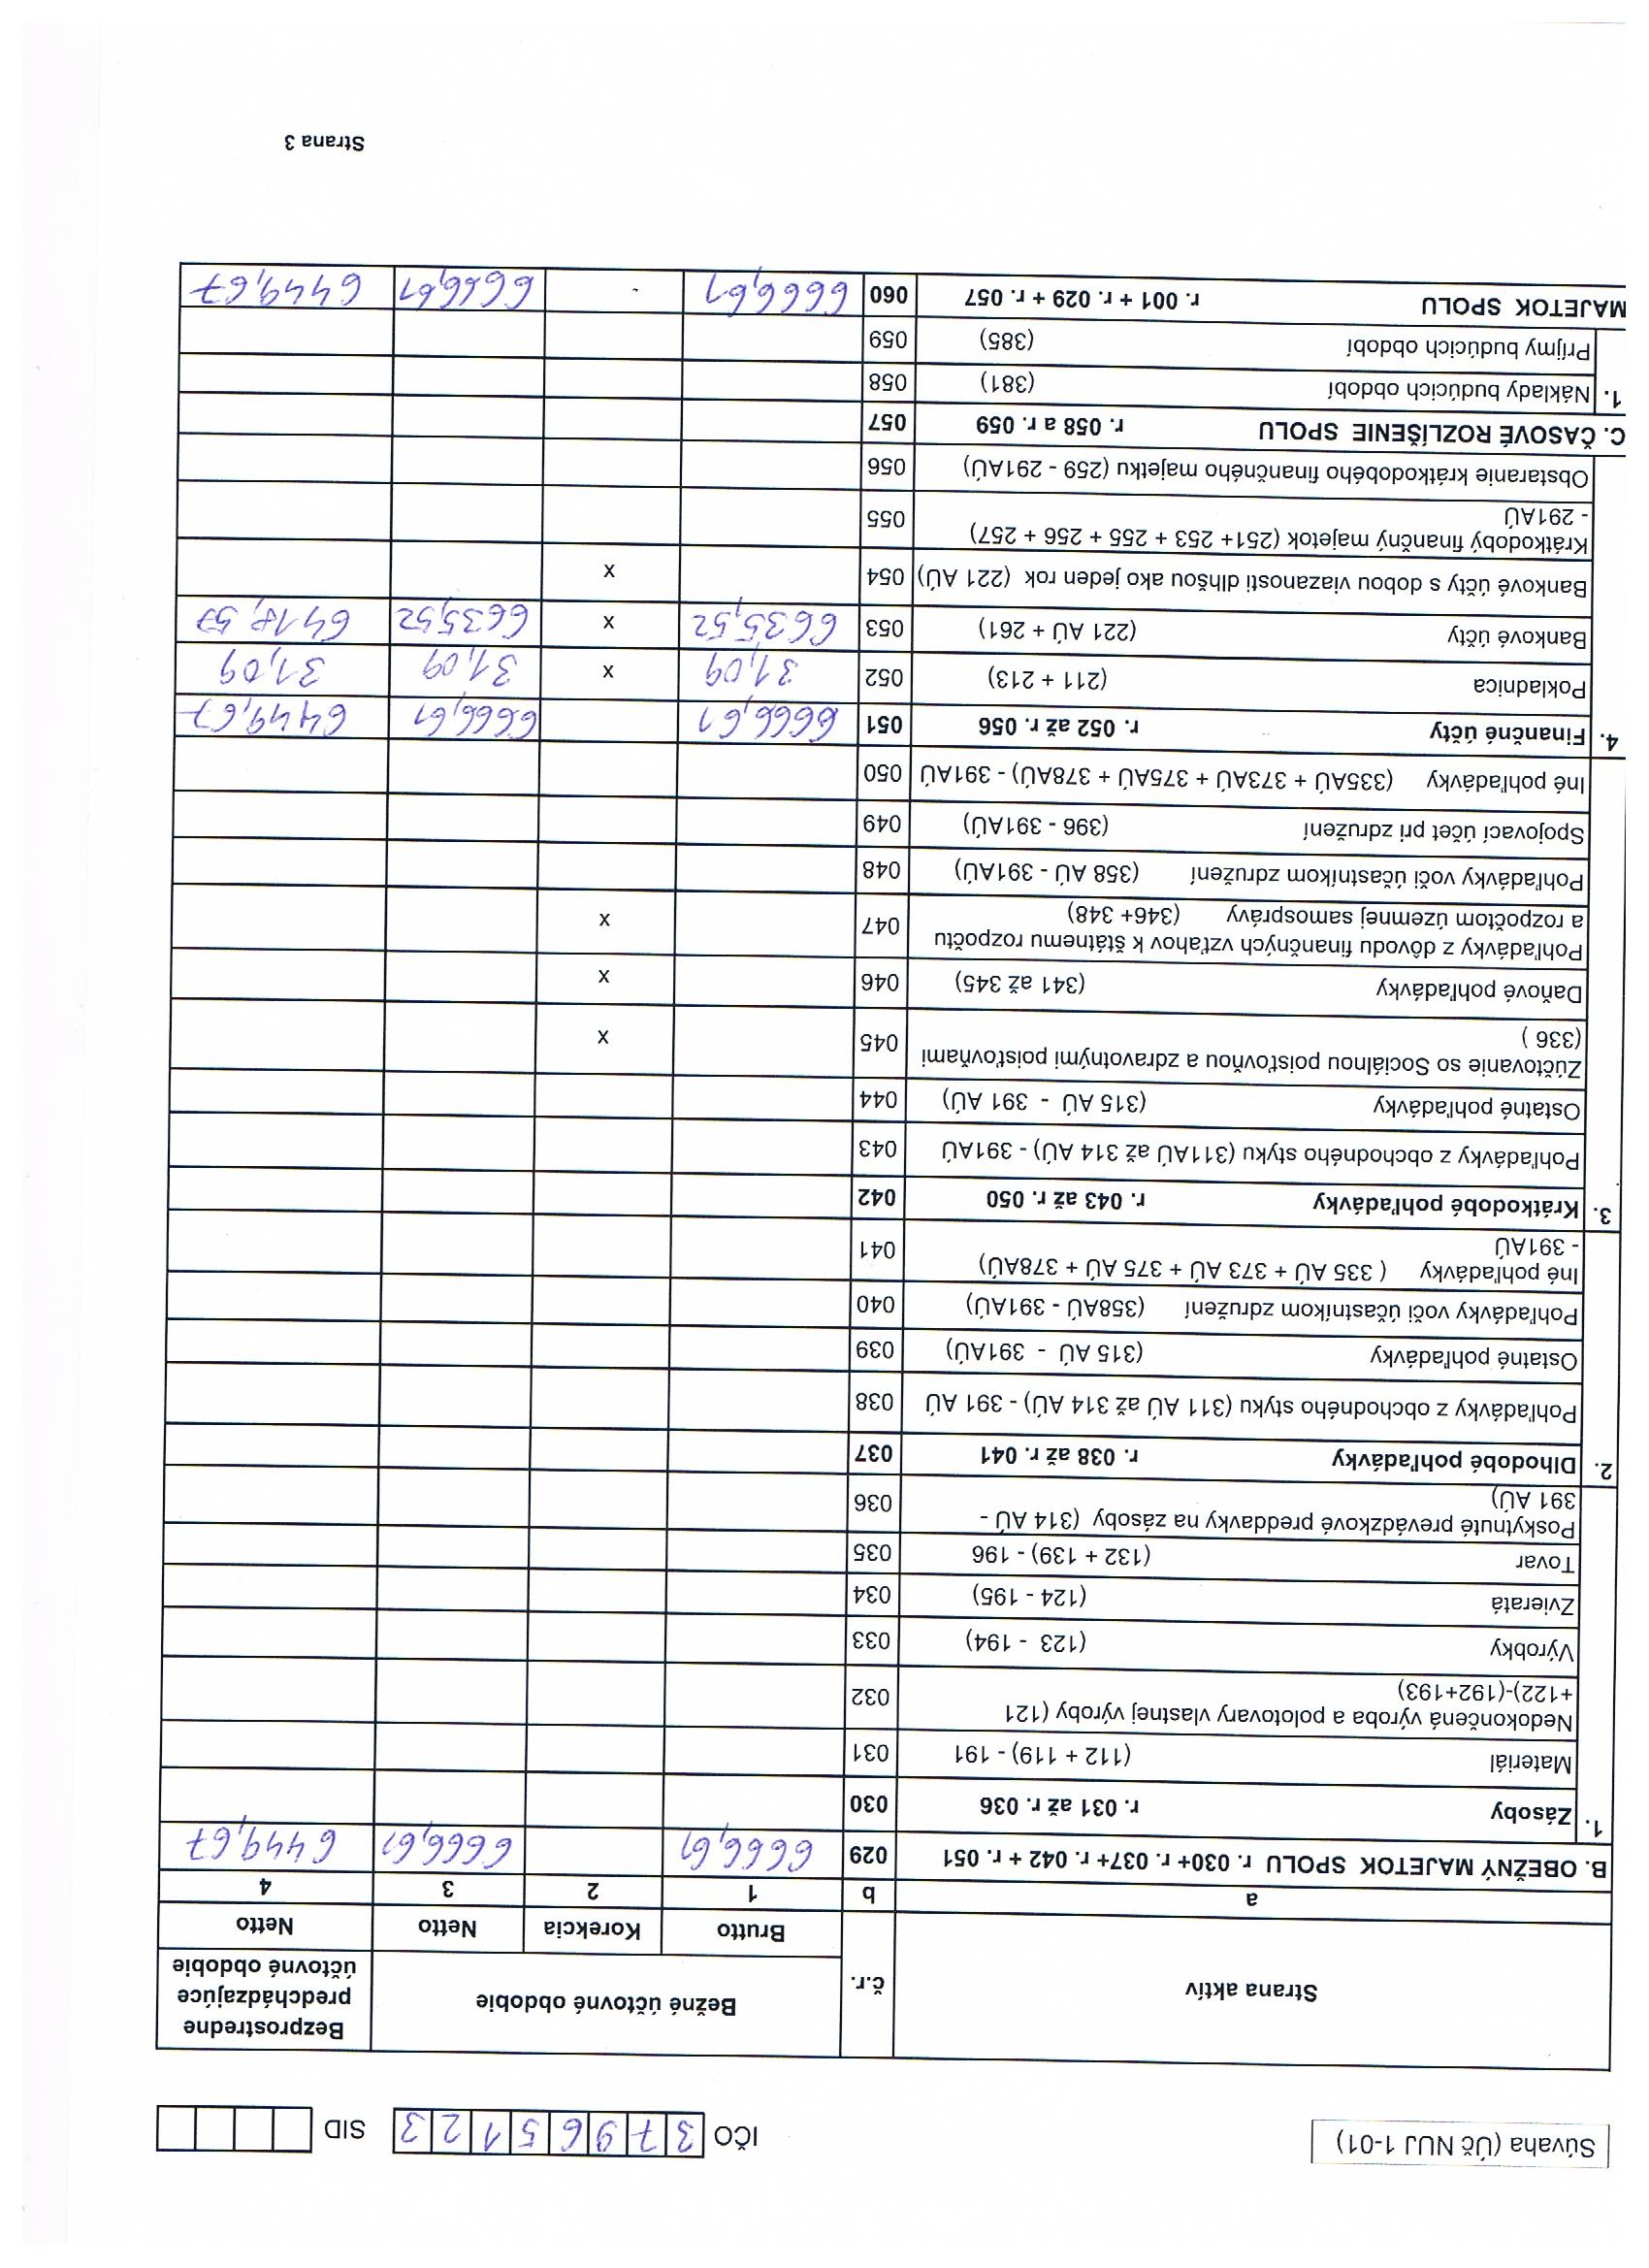 Súvaha (Úč NUJ 1-01)
IČO 3 7 9 6 5 1 2 3 SID
Strana aktív
č.r.
Bežné účtovné obdobie
Bezprostredne
predchádzajúce
účtovné obdobie
Brutto Korekcia Netto Netto
a b 1 2 3 4
B. OBEŽNÝ MAJETOK SPOLU r. 030+ r. 037+ r. 042 + r. 051 029 6666,61 6666,61 6449,67
1. Zásoby r. 031 až r. 036 030
Materiál (112 + 119) - 191 031
Nedokončená výroba a polotovary vlastnej výroby (121
+122)-(192+193) 032
Výrobky (123 - 194) 033
Zvieratá (124 - 195) 034
Tovar (132 + 139) - 196 035
Poskytnuté prevádzkové preddavky na zásoby (314 AÚ -
391 AÚ) 036
2. Dlhodobé pohľadávky r. 038 až r. 041 037
Pohľadávky z obchodného styku (311 AÚ až 314 AÚ) - 391 AÚ 038
Ostatné pohľadávky (315 AÚ - 391AÚ) 039
Pohľadávky voči účastníkom združení (358AÚ - 391AÚ) 040
Iné pohľadávky ( 335 AÚ + 373 AÚ + 375 AÚ + 378AÚ)
- 391AÚ 041
3. Krátkodobé pohľadávky r. 043 až r. 050 042
Pohľadávky z obchodného styku (311AÚ až 314 AÚ) - 391AÚ 043
Ostatné pohľadávky (315 AÚ - 391 AÚ) 044
Zúčtovanie so Sociálnou poisťovňou a zdravotnými poisťovňami
(336 ) 045 x
Daňové pohľadávky (341 až 345) 046 x
Pohľadávky z dôvodu finančných vzťahov k štátnemu rozpočtu
a rozpočtom územnej samosprávy (346+ 348) 047 x
Pohľadávky voči účastníkom združení (358 AÚ - 391AÚ) 048
Spojovací účet pri združení (396 - 391AÚ) 049
Iné pohľadávky (335AÚ + 373AÚ + 375AÚ + 378AÚ) - 391AÚ 050
4. Finančné účty r. 052 až r. 056 051 6666,61 6666,61 6449,67
Pokladnica (211 + 213) 052 31,09 x 31,09 31,09
Bankové účty (221 AÚ + 261) 053 6635,52 x 6635,52 6418,57
Bankové účty s dobou viazanosti dlhšou ako jeden rok (221 AÚ) 054 x
Krátkodobý finančný majetok (251+ 253 + 255 + 256 + 257)
- 291AÚ 055
Obstaranie krátkodobého finančného majetku (259 - 291AÚ) 056
C. ČASOVÉ ROZLÍŠENIE SPOLU r. 058 a r. 059 057
1. Náklady budúcich období (381) 058
Príjmy budúcich období (385) 059
MAJETOK SPOLU r. 001 + r. 029 + r. 057 060 6666,61 - 6666,61 6449,67
Strana 3